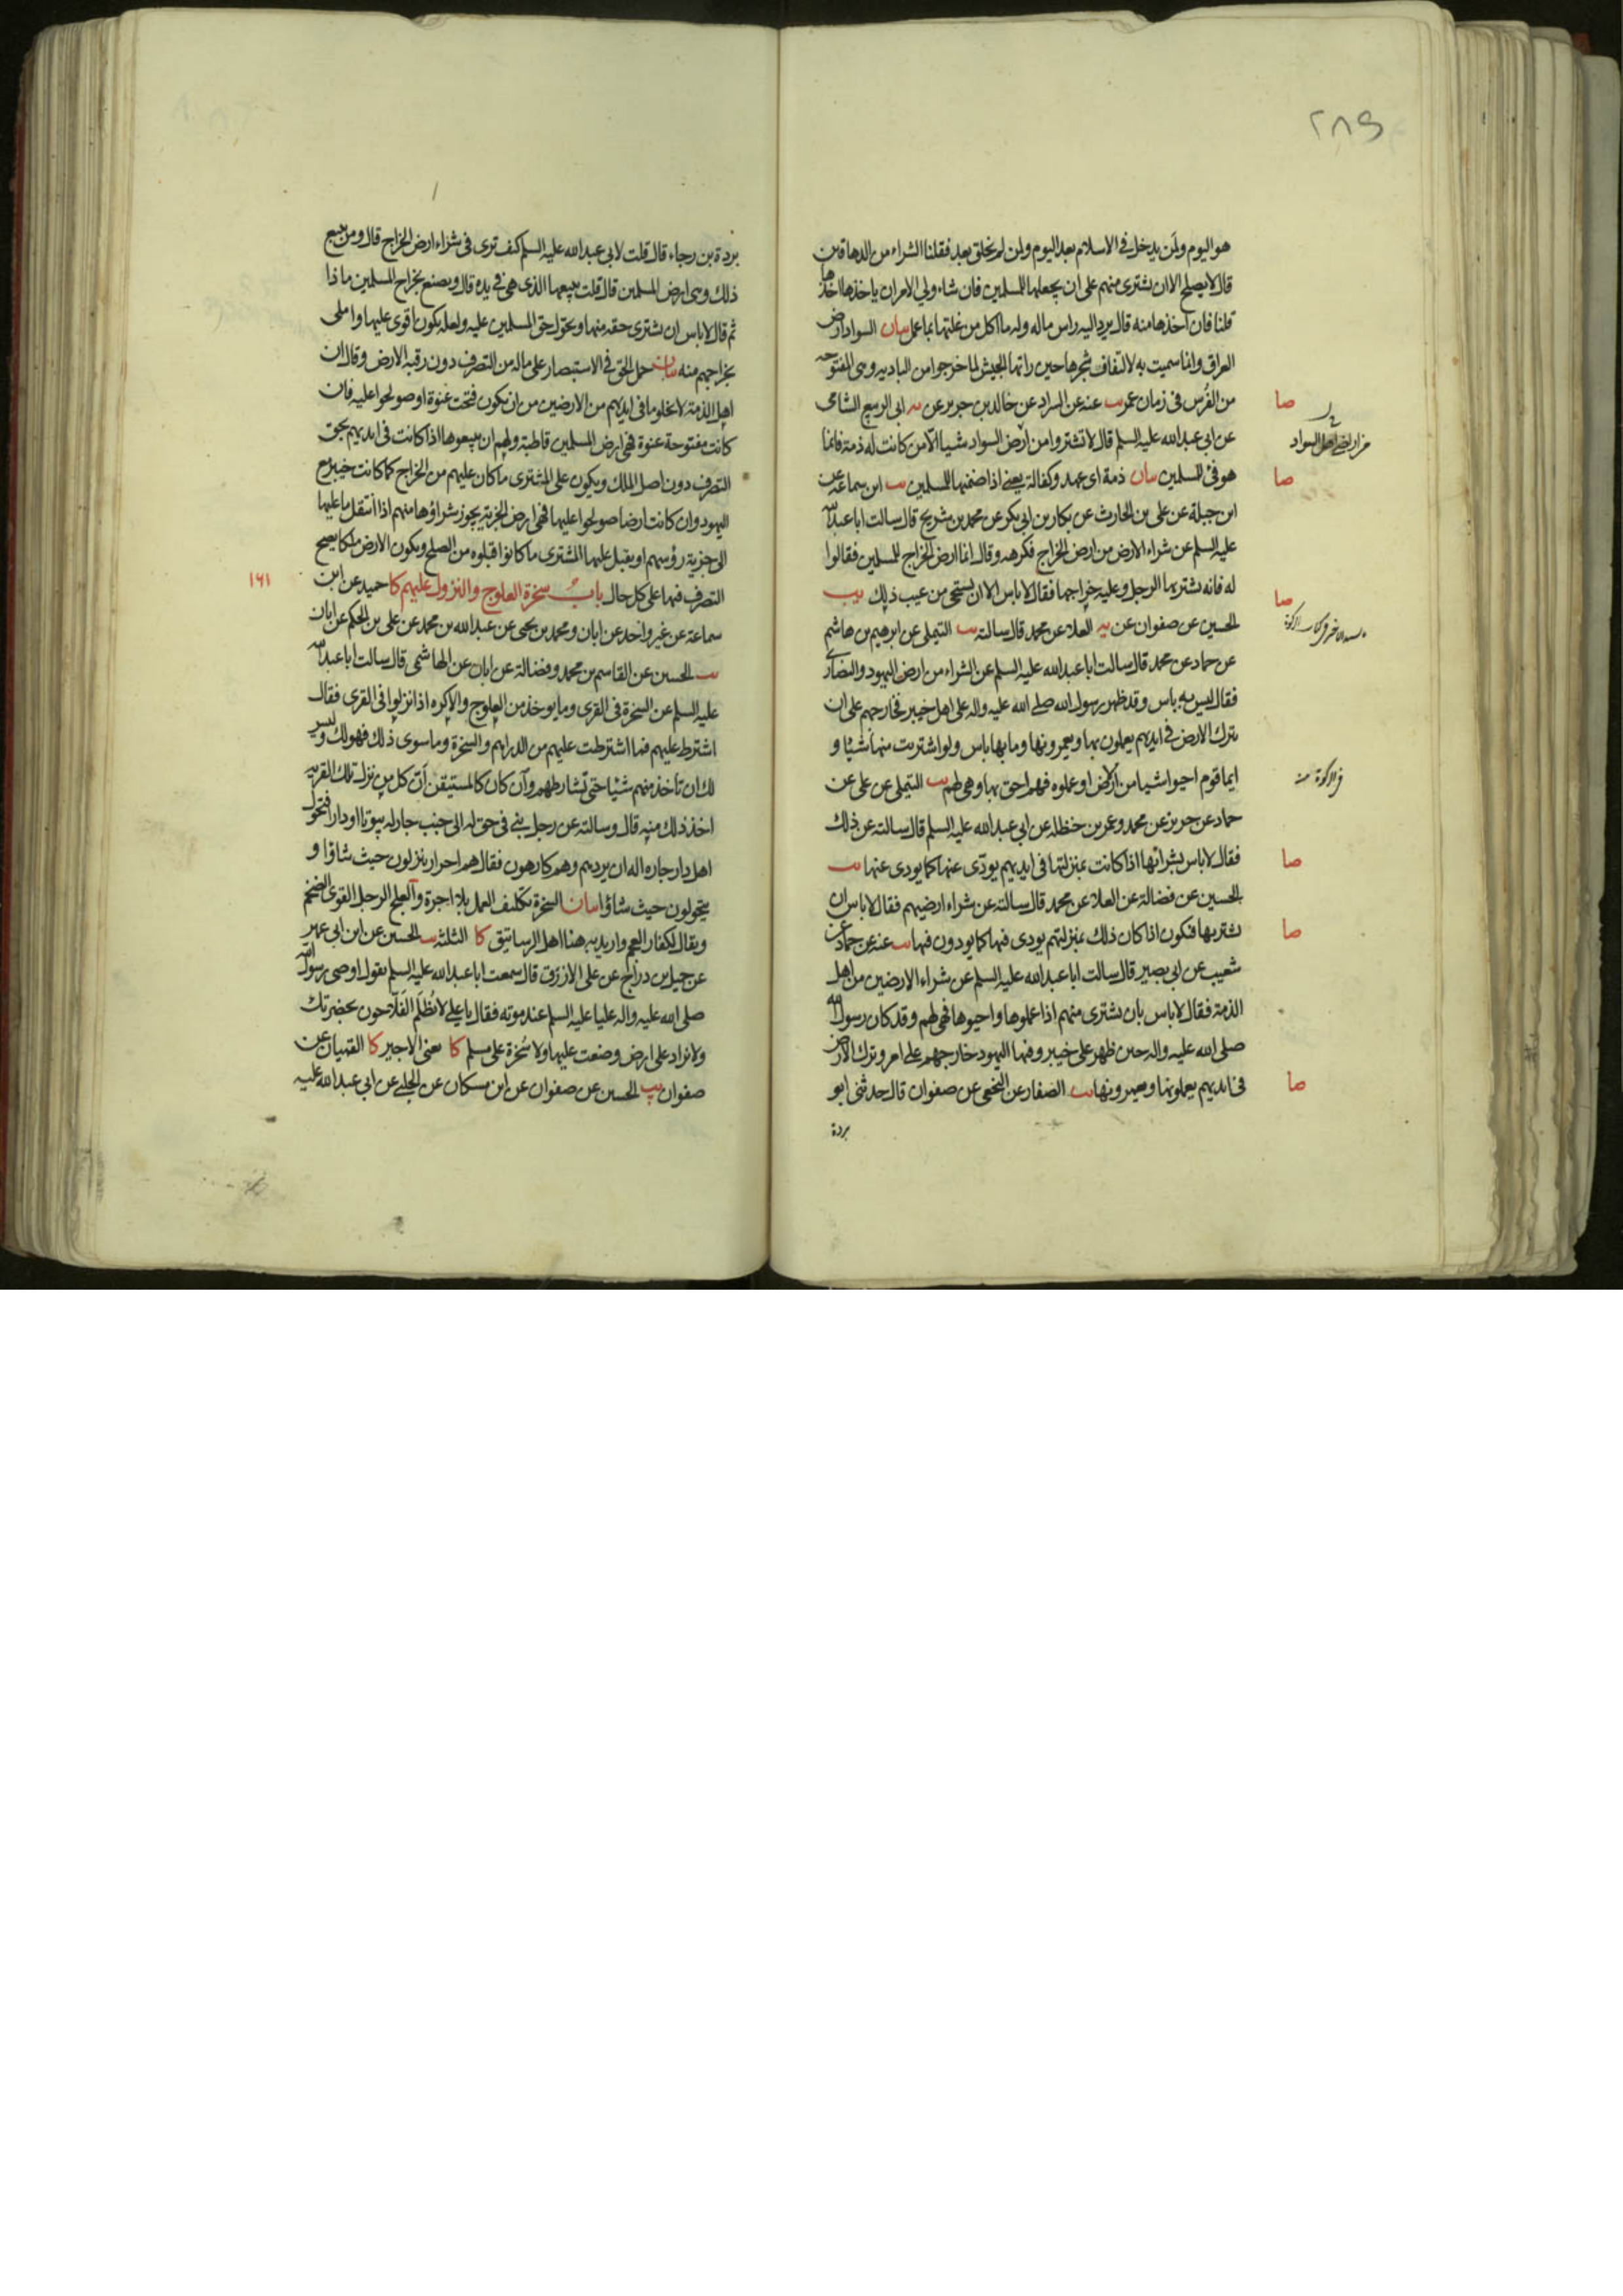 ٢٨٩
هو اليوم ولمن يدخل في الاسلام بعد اليوم ولمن لم يخلق بعد فقلنا الشراء من الدهاقين
قال لا يصلح الا ان يشترى منهم على ان يجعلها للمسلمين فان شاء ولي الامر ان ياخذها اخذها
قلنا فان اخذها منه قال يرد اليه راس ماله وله ما اكل من غلتها بما عمل بيان السواد ارض
العراق وانما سميت به لالتفاف شجرها حين راتها الجيش لما خرجوا من البادية وهي المفتوحة
من الفُرس في زمان عمر يب عنه عن السراد عن خالد بن جرير عن يه ابى الربيع الشامى
عن ابى عبد الله عليه السلم قال لا تشتروا من ارض السواد شيا الا من كانت له ذمة فانما
هو فئ للمسلمين بيان ذمة اى عهد وكفالة يعنى اذا ضمنها للمسلمين يب ابن سماعة عن
ابن جبلة عن على بن الحارث عن بكار بن ابى بكر عن محمد بن شريح قال سالت ابا عبد الله
عليه السلم عن شراء الارض من ارض الخراج فكرهه وقال انما ارض الخراج للمسلمين فقالوا
له فانه يشتريها الرجل وعليه خراجها فقال لا باس الا ان يستحى من عيب ذلك يب
الحسين عن صفوان عن يه العلاء عن محمد قال سالته يب التيملى عن ابرهيم بن هاشم
عن حماد عن محمد قال سالت ابا عبد الله عليه السلم عن الشراء من ارض اليهود والنصارى
فقال ليس به باس وقد ظهر رسول الله صلى الله عليه واله على اهل خيبر فخارجهم على ان
يترك الارض فى ايديهم يعملون بها ويعمرونها وما بها باس ولو اشتريت منها شيئا و
ايما قوم احيوا شيا من الارض او عملوه فهم احق بها وهى لهم يب التيملى عن على عن
حماد عن حريز عن محمد وعمر بن حنظلة عن ابى عبد الله عليه السلم قال سالته عن ذلك
فقال لا باس بشرائها اذا كانت بمنزلتها فى ايديهم يودّى عنها كما يودى عنها يب
الحسين عن فضالة عن العلاء عن محمد قال سالته عن شراء ارضيهم فقال لا باس ان
يشتريها فتكون اذا كان ذلك بمنزلتهم يودى فيها كما يودون فيها يب عنه عن حماد عن
شعيب عن ابى بصير قال سالت ابا عبد الله عليه السلم عن شراء الارضين من اهل
الذمة فقال لا باس بان يشترى منهم اذا عملوها واحيوها فهى لهم وقد كان رسول الله
صلى الله عليه واله حين ظهر على خيبر وفيها اليهود خارجهم على امر وترك الارض
فى ايديهم يعملونها ويعمرونها يب الصفار عن النخعى عن صفوان قال حدثنى ابو
بردة
صا
من اراضى اهل السواد
صا
صا
صا
صا
صا
بردة بن رجاء قال قلت لابى عبد الله عليه السلم كيف ترى فى شراء ارض الخراج قال ومن يبيع
ذلك وهى ارض المسلمين قال قلت يبيعها الذى هى فى يده قال ويصنع بخراج المسلمين ما ذا
ثم قال لا باس ان يشترى حقه منها ويحول حق المسلمين عليه ولعله يكون اقوى عليها واملى
بخراجهم منه بيان حمل الحق فى الاستبصار على ماله من التصرف دون رقبة الارض وقال ان
اهل الذمة لا يخلو ما فى ايديهم من الارضين من ان يكون فتحت عنوة او صولحوا عليه فان
كانت مفتوحة عنوة فهى ارض المسلمين قاطبة ولهم ان يبيعوها اذا كانت فى ايديهم بحق
التصرف دون اصل الملك ويكون على المشترى ما كان عليهم من الخراج كما كانت خيبر مع
اليهود وان كانت ارضا صولحوا عليها فهى ارض الجزية يجوز شراؤها منهم اذا انتقل ما عليها
الى جزية رؤسهم او يقبل عليها المشترى ما كانوا قبلوه من الصلح ويكون الارض ملكا يصح
التصرف فيها على كل حال باب سخرة العلوج والنزول عليهم كا حميد عن ابن
سماعة عن غير واحد عن ابان ومحمد بن يحيى عن عبد الله بن محمد عن على بن الحكم عن ابان
يب الحسين عن القاسم بن محمد وفضالة عن ابان عن الهاشمى قال سالت ابا عبد الله
عليه السلم عن السخرة فى القرى وما يوخذ من العلوج والاكرة اذا نزلوا فى القرى فقال
اشترط عليهم فما اشترطت عليهم من الدراهم والسخرة وما سوى ذلك فهو لك وليس
لك ان تأخذ منهم شيئا حتى تشارطهم وان كان كالمستيقن ان كل من نزل تلك القرية
اخذ ذلك منه قال وسالته عن رجل بنى فى حق له الى جنب جار له بيوتا او دارا فتحول
اهل دار جاره اله ان يردهم وهم كارهون فقال هم احرار ينزلون حيث شاؤا و
يتحولون حيث شاؤا بيان السخرة تكليف العمل بلا اجرة والعلج الرجل القوى الضخم
ويقال لكفار العجم واريد به هنا اهل الرساتيق كا الثلثة يب الحسين عن ابن ابى عمير
عن جميل بن دراج عن على الازرق قال سمعت ابا عبد الله عليه السلم يقول اوصى رسول الله
صلى الله عليه واله عليا عليه السلم عند موته فقال يا على لا تُظلَم الفَلاّحون بحضرتك
ولا تزاد على ارض وضعت عليها ولا سُخرة على مسلم كا يعنى الاجير كا القميان عن
صفوان يب الحسين عن صفوان عن ابن مسكان عن الحلبى عن ابى عبد الله عليه
١٦١